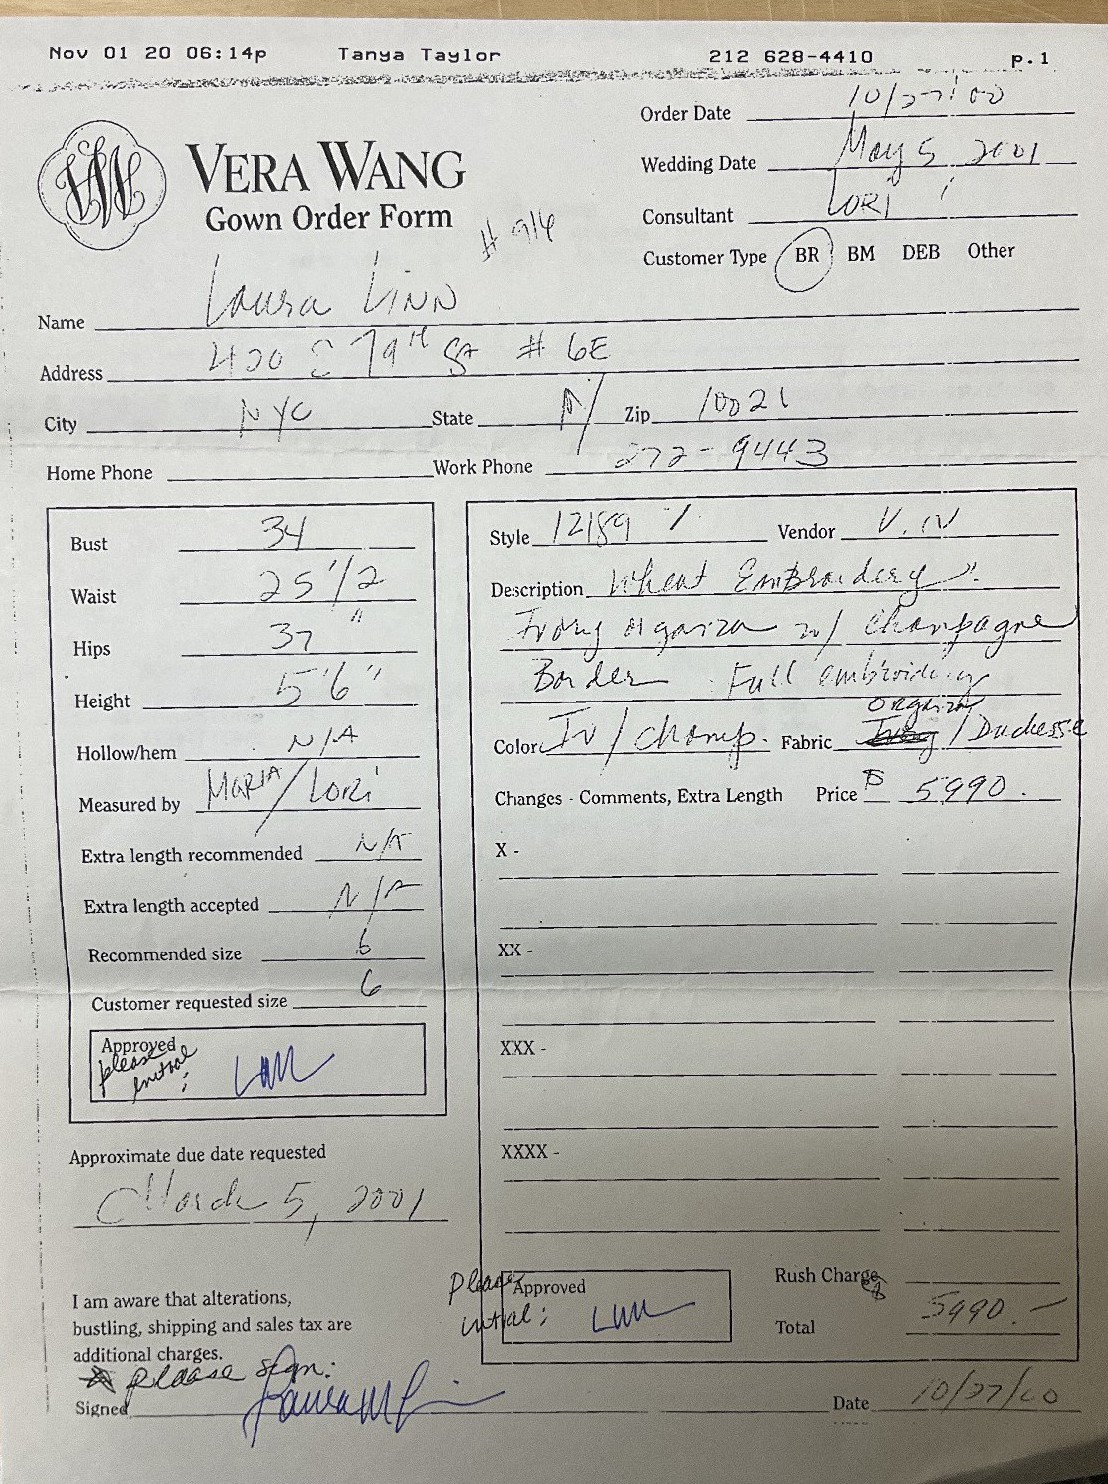 Nov 01 20 06:14p Tanya Taylor 212 628-4410 p.1
Order Date 10/27/00
VERA WANG
Gown Order Form
# 916
Wedding Date May 5 2001
Consultant LORI
Customer Type BR BM DEB Other
Name Laura LINN
Address 420 E 79TH St # 6E
City NYC State NY Zip 10021
Home Phone Work Phone 272-9443
Bust 34
Waist 25 1/2
Hips 37"
Height 5'6"
Hollow/hem N/A
Measured by MARIA/LORI
Extra length recommended N/A
Extra length accepted N/A
Recommended size 6
Customer requested size 6
Approved
please
initial
:
LML
Style 12189 Vendor V.W
Description Wheat Embroidery".
Ivory organza w/ champagne
Border Full embroidery
Color Iv/champ. Fabric organza /Duchesse
Changes - Comments, Extra Length Price $ 5990.
X -
XX -
XXX -
XXXX -
Approximate due date requested
March 5, 2001
Please
initial:
Approved
LML
Rush Charge
Total $ 5990.-
I am aware that alterations,
bustling, shipping and sales tax are
additional charges.
please sign:
Signed Laura M Linn Date 10/27/00